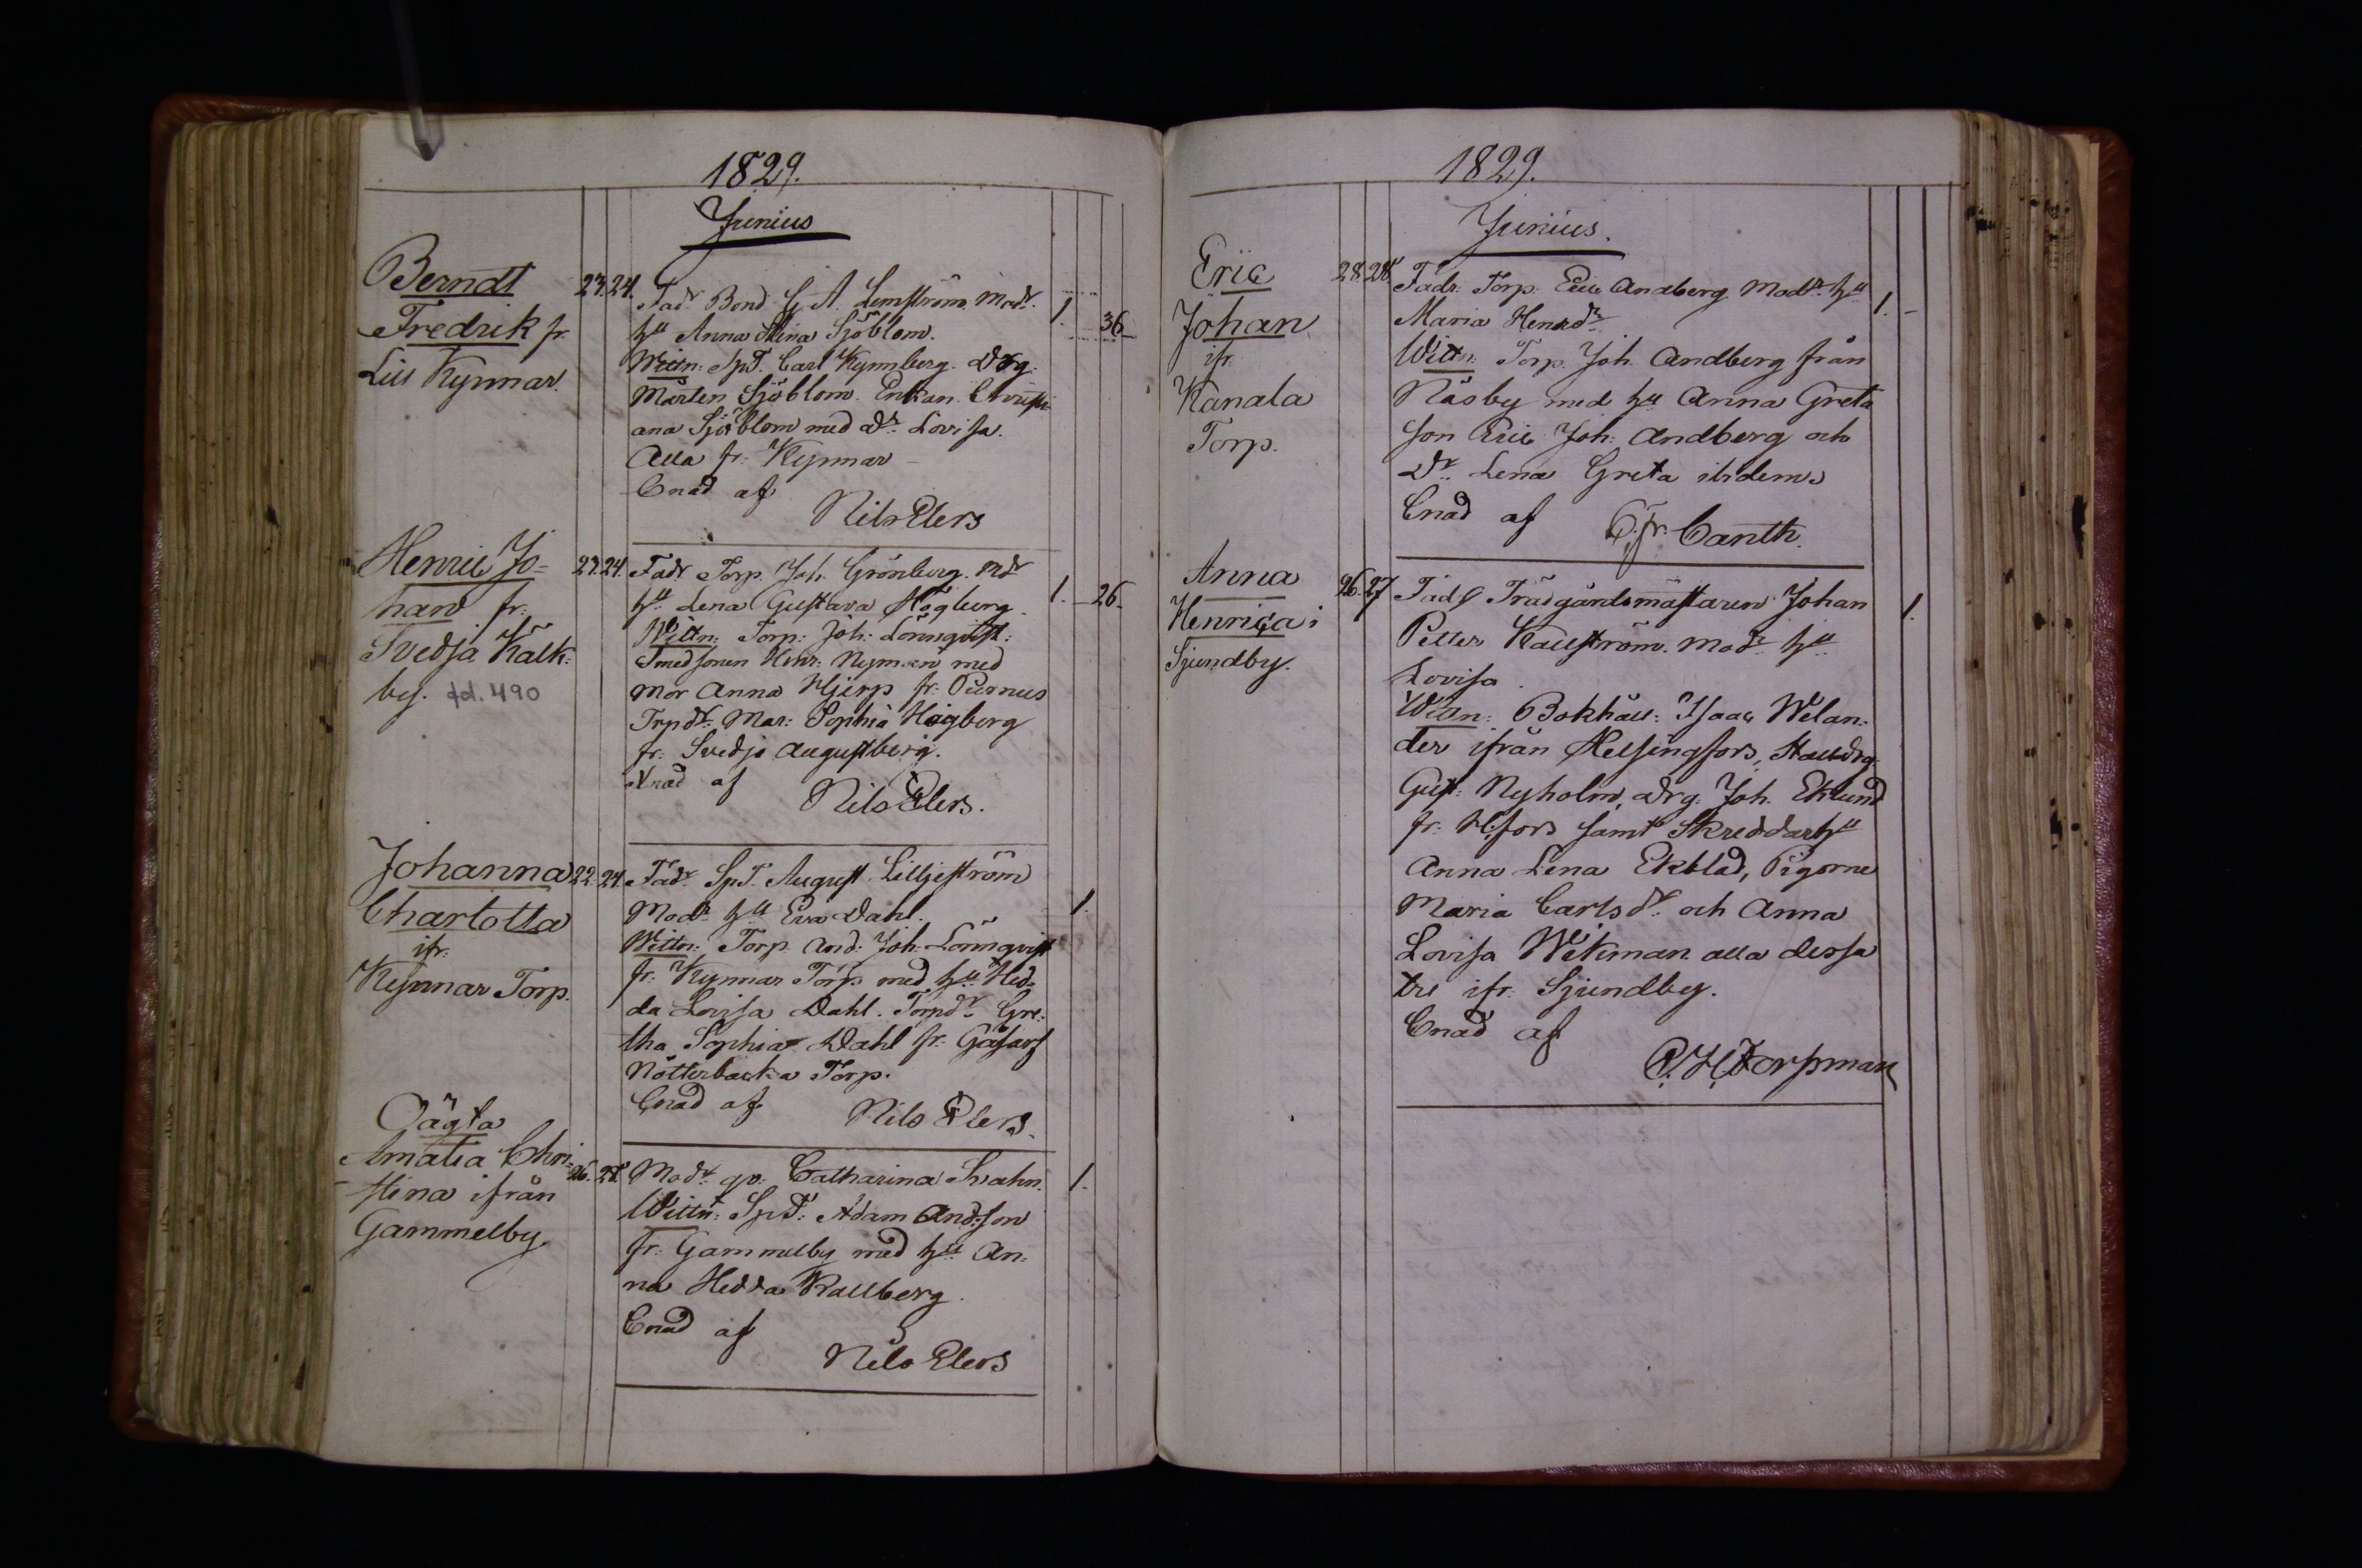 1829.
Junius
Berndt
Fredrik fr.
Lill Kynnar.
23. 24.
Fadr Bond G. A. Lemström Modr.
hu Anna Stina Sjöblom.
Wittn: SpT. Carl Kynnberg. Drg:
Mårten Sjöblom. Enkan Christi-
ana Sjöblom med Dr. Lovisa.
Alla fr: Kynnar
Cnad af
Nils Elers
1. 36
Henric Jo=
han fr:
Svedja Kålk:
by. fd. 490
23. 24.
Fadr Torp. Joh. Grönberg. Mdr
hu Lena Gustava Högberg.
Wittn: Torp: Joh: Lönnqvist:
Smedsonen Henr: Nyman med
mor Anna Hjerp fr: Purnus
Trpdr. Mar: Sophia Högberg
fr: Svedja Augustberg.
Cnad af
Nils Elers.
1. 26.
Johanna
Charlotta
ifr:
Kynnar Torp.
22. 24.
Fadr. SpT. August Lilljeström
Modr hu Eva Dahl.
Wittn: Torp. And: Joh: Lönnqvist
fr. Kynnar Torp med hu Hed-
da Lovisa Dahl. Torpdr Gre-
tha Sophia Dahl fr: Gåsars
Nötterbacka Torp.
Cnad af
Nils Elers.
1.
Oägta
Amalia Chri-
stina ifrån
Gammelby.
26. 28.
Modr. qv: Catharina Svahn.
Wittn: SpT: Adam Andsson
fr: Gammelby med hu An-
na Hedda Kallberg.
Cnad af
Nils Elers
1.
1829.
Junius.
Eric
Johan
ifr.
Kanala
Torp.
28. 28.
Fadr: Torp. Eric Andberg Modr. hu
Maria Henrdr.
Wittn: Torp. Joh. Andberg från
Näsby med hu Anna Greta
son Eric Joh: Andberg och
Dr. Lena Greta ibidem.
Cnad af
C. Fr. Canth.
1. -
Anna
Henrica i
Sjundby.
26. 27
Fadr Trädgårdsmästaren Johan
Petter Kallström. Modr hu
Lovisa
Wittn: Bokhåll: Isaac Welan-
der ifrån Helsingfors, Stalldrg.
Gust: Nyholm, drg. Joh. Eklund
fr: H:fors samt Skreddarhu
Anna Lena Ekblad, Pigorne
Maria Carlsdr. och Anna
Lovisa Wikman alla dessa
tre ifr: Sjundby.
Cnad af
C. H. Forsman
1.